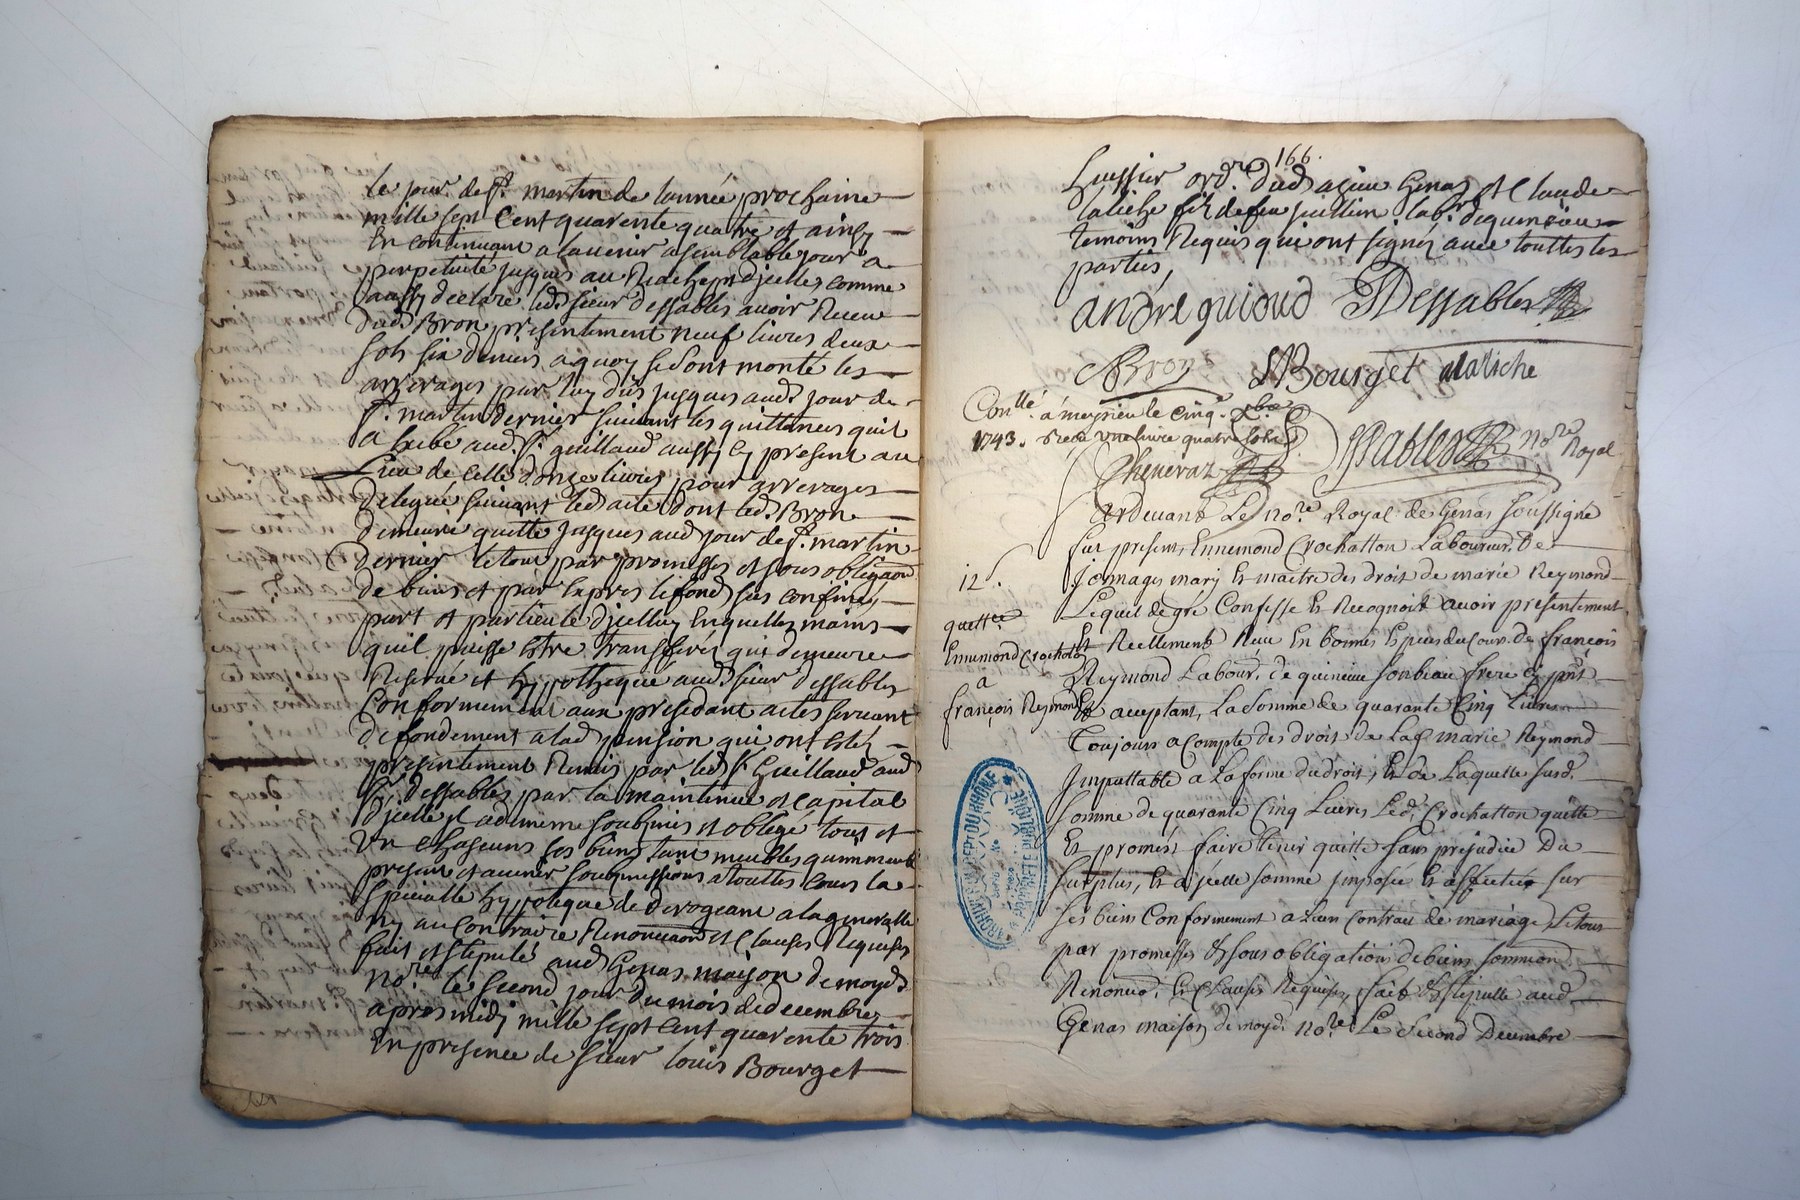 le jour de St. martin de lannée prochaine
mille sept Cent quarente quatre et ainsy
En continuant a lauenir a semblable jour a
perpetuité jusques au Rachept d'jcelles comme
aussy declare led. sieur dessables auoir Receu
dud. Bron presentement neuf liures deux
sols six deniers a quoy se sont monté les
arrerages par luy dus jusques aud. jour de
St. martin dernier suiuant les quittances quil
a exibé aud. Sr. guillaud aussy cy present au
Lieu de celle donze liures pour arrerages
delegué suiuant led. acte dont led. Bron
demeure quitte jusques aud. jour de St. martin
dernier le tout par promesses et sous obligaon
de biens et par Expres le fond sus confiné,
part et partie de d'jcelluy En quelles mains
quil puisse Estre transferés qui demeure
Reserué et hypothequé aud. sieur dessables
Conformement aux precedant actes seruant
de fondement a lad. pension qui ont Esté
presentement Remis par led. Sr. Guillaud aud.
Sr. dessables par la maintenue et Capital
d'jcelle jl a de meme soubzmis et obligé tous et
Vn Chascuns ses biens tant meubles qu'immeubles
present et auenir soubzmissions a touttes Cours la
specialle hypoteque de derogeant a la generalle
ny au Contraire Renonciaon et Clauses Requises
fait et stipulé aud. Genas maison de moyd.
nore. le second jour du mois de decembre
apres midy mille sept Cent quarente trois
En presence de sieur louis Bourget
166.
huissier ordre. dud. a genas et Claude
laliche fils de feu jullien labr. de quinsieu
temoins Requis qui ont signés auec touttes les
parties,
andré guioud Dessables
Bron Bourget laliche
Conllé. a meyzieu le cinqe. xbre
1743. Receu vne liure quatre sols
Cheneraz
Dessables nore Royal
Pardeuant Le nore. Royal de Genas soussigné
fut present, Ennemond Crochatton Laboureur de
Jonnages mary Et maitre des droit de marie Reymond
Lequel de gré Confesse Et Recognoit auoir présentement
Et Reellement Receu En bonnes Especes du Cours de françois
Reymond Labour. de quincieu son beau frere cy pnt
Et acceptant, La somme de quarante Cinq Liures
Toujours a Compte des droit de Lad. marie Reymond
Jmputtable a La forme du droit, Et de Laquelle susd.
somme de quarante Cinq Liures Led. Crochatton quitte
Et promest faire tenir quitte sans prejudice Du
surplus, Et a jcelle somme jmposée Et affectée sur
ses biens Conformement a Leur Contract de mariage Le tout
par promesses Et sous obligations de biens soumiond.
Renonuo. Et Clauses Requises, fait Et stipullé aud.
Genas maison de moyd. nore. Le second Decembre
12s.
quitte
Ennemond Crochatton
a
françois Reymond
ARCHIVES DEPT DU RHONE
PROPRIETE PUBLIQUE